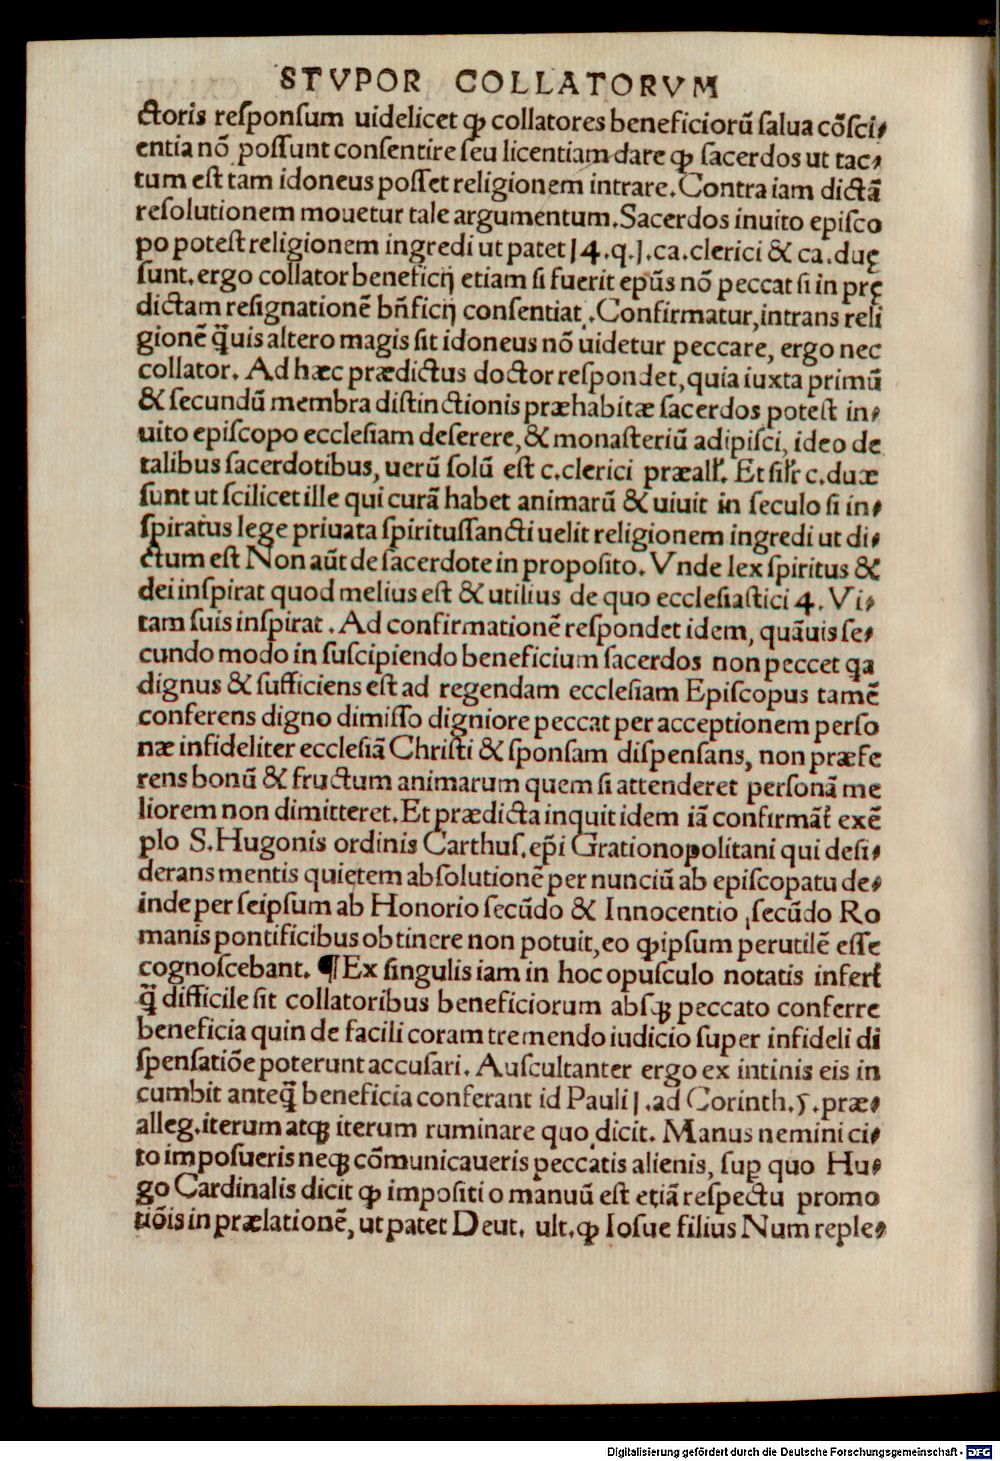 STVPOR COLLATORVM
ctoris reſponſum uidelicet ꝙ collatores beneficiorū ſalua cōſci⸗
entia nō poſſunt conſentire ſeu licentiam dare ꝙ ſacerdos ut tac⸗
tum eſt tam idoneus poſſet religionem intrare. Contra iam dictā
reſolutionem mouetur tale argumentum. Sacerdos inuito epiſco
po poteſt religionem ingredi ut patet J4.q.J.ca.clerici & ca.duę
ſunt. ergo collator beneficij etiam ſi fuerit ep̄us nō peccat ſi in prę
dictam reſignationē bn̄ficij conſentiat. Confirmatur, intrans reli
gionē q̄uis altero magis ſit idoneus nō uidetur peccare, ergo nec
collator. Ad hæc prædictus doctor reſpondet, quia iuxta primū
& ſecundū membra diſtinctionis præhabitæ ſacerdos poteſt in⸗
uito epiſcopo eccleſiam deſerere, & monaſteriū adipiſci, ideo de
talibus ſacerdotibus, uerū ſolū eſt c.clerici præall̓. Et ſil̓r c.duæ
ſunt ut ſcilicet ille qui curā habet animarū & uiuit in ſeculo ſi in⸗
ſpiratus lege priuata ſpirituſſancti uelit religionem ingredi ut di⸗
ctum eſt Non aūt de ſacerdote in propoſito. Vnde lex ſpiritus &
dei inſpirat quod melius eſt & utilius de quo eccleſiaſtici 4. Vi⸗
tam ſuis inſpirat. Ad confirmationē reſpondet idem, quāuis ſe⸗
cundo modo in ſuſcipiendo beneficium ſacerdos non peccet qa
dignus & ſufficiens eſt ad regendam eccleſiam Epiſcopus tamē
conferens digno dimiſſo digniore peccat per acceptionem perſo
næ infideliter eccleſiā Chriſti & ſponſam diſpenſans, non præfe
rens bonū & fructum animarum quem ſi attenderet perſonā me
liorem non dimitteret. Et prædicta inquit idem iā confirmāt̓ exē
plo S. Hugonis ordinis Carthuſ. ep̄i Grationopolitani qui deſi⸗
derans mentis quietem abſolutionē per nunciū ab epiſcopatu de⸗
inde per ſeipſum ab Honorio ſecūdo & Innocentio ſecūdo Ro
manis pontificibus obtinere non potuit, eo ꝙ ipſum perutilē eſſe
cognoſcebant. ¶ Ex ſingulis iam in hoc opuſculo notatis infert̓
q̄ difficile ſit collatoribus beneficiorum abſqꝫ peccato conferre
beneficia quin de facili coram tremendo iudicio ſuper infideli di
ſpenſatiōe poterunt accuſari. Auſcultanter ergo ex intinis eis in
cumbit anteq̄ beneficia conferant id Pauli J.ad Corinth.5.præ⸗
alleg. iterum atqꝫ iterum ruminare quo dicit. Manus nemini ci⸗
to impoſueris neqꝫ cōmunicaueris peccatis alienis, ſuꝑ quo Hu⸗
go Cardinalis dicit ꝙ impoſitio manuū eſt etiā reſpectu promo
tiōis in prælationē, ut patet Deut. ult. ꝙ Ioſue filius Num reple⸗
Digitalisierung gefördert durch die Deutsche Forschungsgemeinschaft - DFG